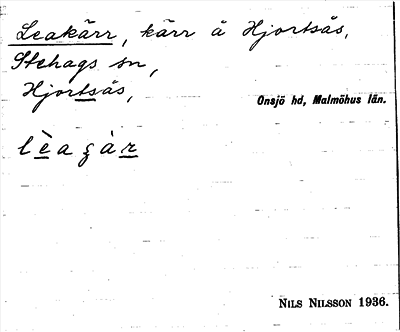 Leakärr, kärr å Hjortsås,
Stehags sn,
Hjortsås,
Onsjö hd, Malmöhus län.
lèaʒàr
NILS NILSSON 1936.